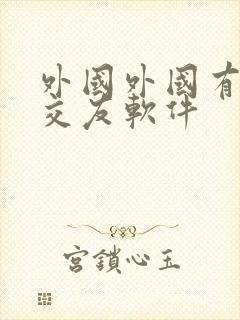 外國外國有
交友軟件
宮鎖心玉